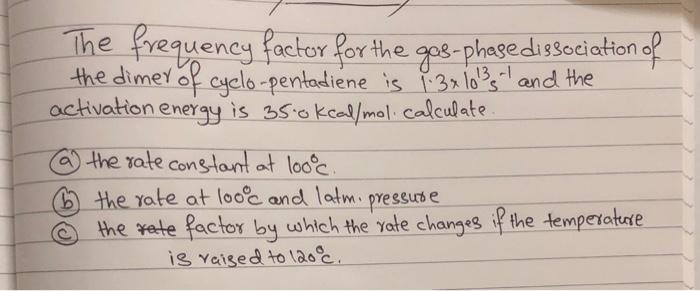 The frequency factor for the gas-phase dissociation of
the dimer of cyclo-pentadiene is 1.3x10¹³s⁻¹ and the
activation energy is 35.0 kcal/mol. calculate.
(a) the rate constant at 100°c.
(b) the rate at 100°c and 1atm. pressure
(c) the rate factor by which the rate changes if the temperature
is raised to 120°c.